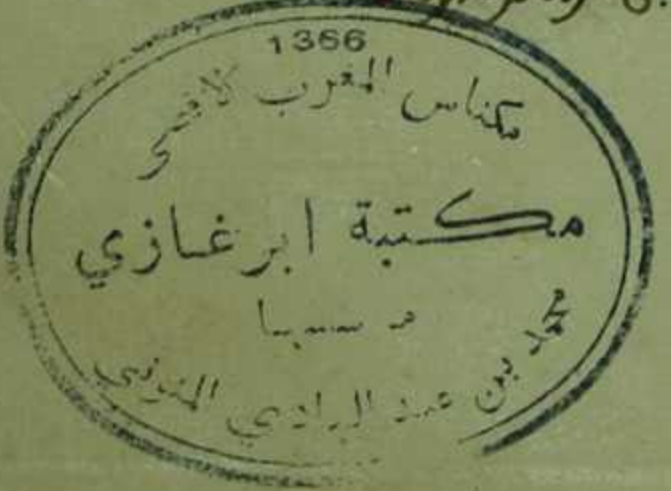 1366
مكناس المغرب الاقصى
مكتبة ابن غازي
مؤسسها
محمد بن عبد الهادي المنوني